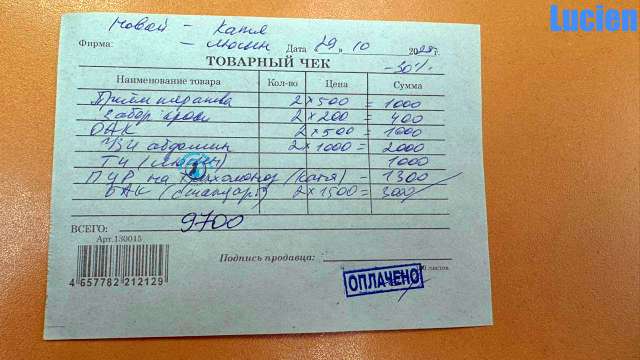 Lucien
Новой - Катя
Фирма: - Люсьен Дата 29 " 10 20 г.
ТОВАРНЫЙ ЧЕК -30%
Наименование товара Кол-во Цена Сумма
Приём терапевта 2 × 500 = 1000
Забор крови 2 × 200 = 400
ОАК 2 × 500 = 1000
УЗИ абдомин 2 × 1000 = 2000
Т4 (Люсьен) 1000
ПЦР на (Катя) - 1300
БАК (стандарт) 2 × 1500 = 3000
ВСЕГО: 9700
Арт.130015
Подпись продавца:
листов
4 657782 212129
ОПЛАЧЕНО